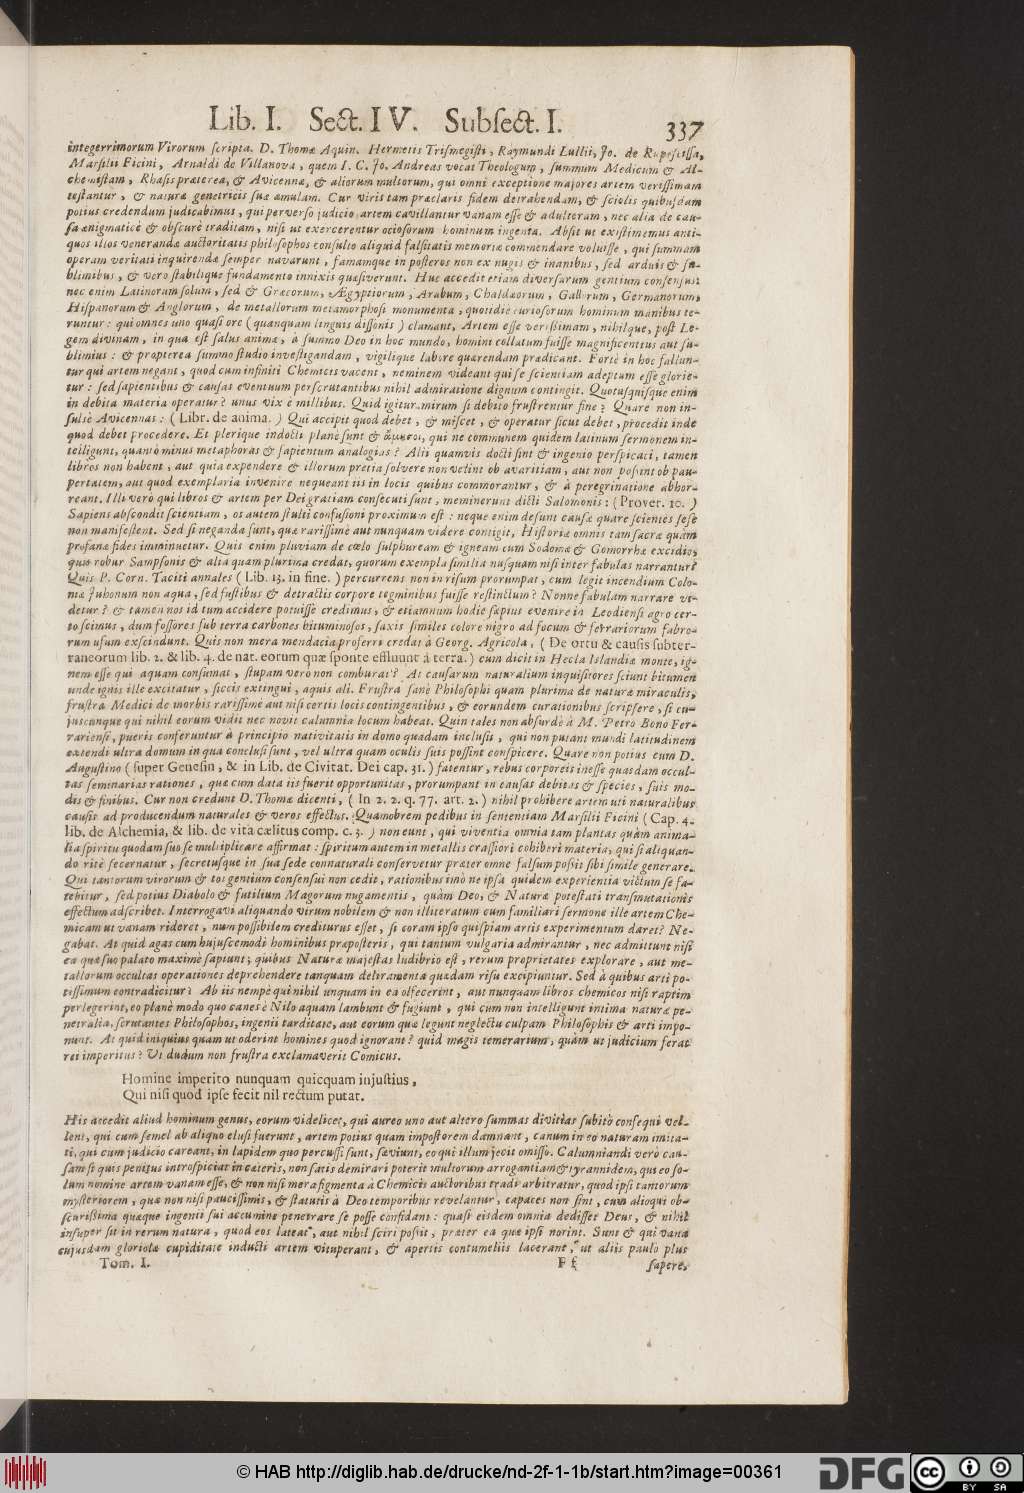 Lib. I. Sect. IV. Subſect. I. 337
integerrimorum Virorum ſcripta, D. Thomæ Aquin. Hermetis Triſmegiſti, Raymundi Lullii, Jo. de Rupeſciſſa,
Marſilii Ficini, Arnaldi de Villanova, quem I. C. Jo. Andreas vocat Theologum, ſummum Medicum & Al-
chemiſtam, Rhaſis præterea, & Avicennæ, & aliorum multorum, qui omni exceptione majores artem veriſſimam
teſtantur, & naturæ genetricis ſuæ æmulam. Cur viris tam præclaris fidem detrahendam, & ſciolis quibuſdam
potius credendum judicabimus, qui perverſo judicio artem cavillantur vanam eſſe & adulteram, nec alia de cau-
ſa ænigmaticè & obſcurè traditam, niſi ut exercerentur ocioſorum hominum ingenia. Abſit ut exiſtimemus anti-
quos illos venerandæ auctoritatis philoſophos conſulto aliquid falſitatis memoriæ commendare voluiſſe, qui ſummam
operam veritati inquirendæ ſemper navarunt, famamque in poſteros non ex nugis & inanibus, ſed arduis & ſu-
blimibus, & vero ſtabilique fundamento innixis quæſiverunt. Huc accedit etiam diverſarum gentium conſenſus:
nec enim Latinorum ſolum, ſed & Græcorum, Ægyptiorum, Arabum, Chaldæorum, Gallorum, Germanorum,
Hiſpanorum & Anglorum, de metallorum metamorphoſi monumenta, quotidie curioſorum hominum manibus te-
runtur: qui omnes uno quaſi ore (quanquam linguis diſſonis) clamant, Artem eſſe veriſſimam, nihilque, poſt Le-
gem divinam, in qua eſt ſalus animæ, à ſummo Deo in hoc mundo, homini collatum fuiſſe magnificentius aut ſu-
blimius: & propterea ſummo ſtudio inveſtigandam, vigilique labore quærendam prædicant. Fortè in hoc fallun-
tur qui artem negant, quod cum infiniti Chemicis vacent, neminem videant qui ſe ſcientiam adeptum eſſe glorie-
tur: ſed ſapientibus & cauſas eventuum perſcrutantibus nihil admiratione dignum contingit. Quotuſquiſque enim
in debita materia operatur? unus vix è millibus. Quid igitur mirum ſi debito fruſtrentur fine? Quare non in-
ſulſè Avicennas: (Libr. de anima.) Qui accipit quod debet, & miſcet, & operatur ſicut debet, procedit inde
quod debet procedere. Et plerique indocti planè ſunt & ἄμυσοι, qui ne communem quidem latinum ſermonem in-
telligunt, quantò minus metaphoras & ſapientum analogias? Alii quamvis docti ſint & ingenio perſpicaci, tamen
libros non habent, aut quia expendere & illorum pretia ſolvere non velint ob avaritiam, aut non poſſint ob pau-
pertatem, aut quod exemplaria invenire nequeant iis in locis quibus commorantur, & à peregrinatione abhor-
reant. Illi verò qui libros & artem per Dei gratiam conſecuti ſunt, meminerunt dicti Salomonis: (Prover. 10.)
Sapiens abſcondit ſcientiam, os autem ſtulti confuſioni proximum eſt: neque enim deſunt cauſæ quare ſcientes ſeſe
non manifeſtent. Sed ſi neganda ſunt, quæ rariſſimè aut nunquam videre contigit, Hiſtoriæ omnis tam ſacræ quàm
profanæ fides imminuetur. Quis enim pluviam de cœlo ſulphuream & igneam cum Sodomæ & Gomorrhæ excidio,
quis robur Sampſonis & alia quam plurima credat, quorum exempla ſimilia nuſquam niſi inter fabulas narrantur?
Quis P. Corn. Taciti annales (Lib. 13. in fine.) percurrens non in riſum prorumpat, cum legit incendium Colo-
niæ Juhonum non aqua, ſed fuſtibus & detractis corpore tegminibus fuiſſe reſtinctum? Nonne fabulam narrare vi-
detur? & tamen nos id tum accidere potuiſſe credimus, & etiamnum hodie ſæpius evenire in Leodienſi agro cer-
to ſcimus, dum foſſores ſub terra carbones bituminoſos, ſaxis ſimiles colore nigro ad focum & ferrariorum fabro-
rum uſum exſcindunt. Quis non mera mendacia proferri credat à Georg. Agricola, (De ortu & cauſis ſubter-
raneorum lib. 2. & lib. 4. de nat. eorum quæ ſponte effluunt à terra.) cum dicit in Hecla Islandiæ monte, ig-
nem eſſe qui aquam conſumat, ſtupam verò non comburat? At cauſarum naturalium inquiſitores ſciunt bitumen
unde ignis ille excitatur, ſiccis extingui, aquis ali. Fruſtra ſanè Philoſophi quam plurima de naturæ miraculis,
fruſtra Medici de morbis rariſſimè aut niſi certis locis contingentibus, & eorundem curationibus ſcripſere, ſi cu-
juscunque qui nihil eorum vidit nec novit calumnia locum habeat. Quin tales non abſurdè à M. Petro Bono Fer-
rarienſi, pueris conferuntur à principio nativitatis in domo quadam incluſis, qui non putant mundi latitudinem
extendi ultra domum in qua concluſi ſunt, vel ultra quam oculis ſuis poſſint conſpicere. Quare non potius cum D.
Auguſtino (ſuper Geneſin, & in Lib. de Civitat. Dei cap. 31.) fatentur, rebus corporeis ineſſe quasdam occul-
tas ſeminarias rationes, quæ cum data iis fuerit opportunitas, prorumpant in cauſas debitas & ſpecies, ſuis mo-
dis & finibus. Cur non credunt D. Thomæ dicenti, (In 2. 2. q. 77. art. 2.) nihil prohibere artem uti naturalibus
cauſis ad producendum naturales & veros effectus. Quamobrem pedibus in ſententiam Marſilii Ficini (Cap. 4.
lib. de Alchemia, & lib. de vita cælitus comp. c. 3.) non eunt, qui viventia omnia tam plantas quàm anima-
lia ſpiritu quodam ſuo ſe multiplicare affirmat: ſpiritum autem in metallis craſſiori cohiberi materia, qui ſi aliquan-
do ritè ſecernatur, ſecretuſque in ſua ſede connaturali conſervetur præter omne falſum poſſit ſibi ſimile generare.
Qui tantorum virorum & tot gentium conſenſui non cedit, rationibus imò ne ipſa quidem experientia victum ſe fa-
tebitur, ſed potius Diabolo & futilium Magorum nugamentis, quàm Deo, & Naturæ poteſtati tranſmutationis
effectum adſcribet. Interrogavi aliquando virum nobilem & non illiteratum cum familiari ſermone ille artem Che-
micam ut vanam rideret, num poſſibilem crediturus eſſet, ſi coram ipſo quiſpiam artis experimentum daret? Ne-
gabat. At quid agas cum hujuſcemodi hominibus præpoſteris, qui tantum vulgaria admirantur, nec admittunt niſi
ea quæ ſuo palato maximè ſapiunt; quibus Naturæ majeſtas ludibrio eſt, rerum proprietates explorare, aut me-
tallorum occultas operationes deprehendere tanquam deliramenta quædam riſu excipiuntur. Sed à quibus arti po-
tiſſimum contradicitur? Ab iis nempè qui nihil unquam in ea olfecerint, aut nunquam libros chemicos niſi raptim
perlegerint, eo planè modo quo canes è Nilo aquam lambunt & fugiunt, qui cum non intelligunt intima naturæ pe-
netralia, ſcrutantes Philoſophos, ingenii tarditate, aut eorum quæ legunt neglectu culpam Philoſophis & arti impo-
nunt. At quid iniquius quam ut oderint homines quod ignorant? quid magis temerarium, quàm ut judicium ferat
rei imperitus? Ut dudum non fruſtra exclamaverit Comicus.
Homine imperito nunquam quicquam injuſtius,
Qui niſi quod ipſe fecit nil rectum putat.
His accedit aliud hominum genus, eorum videlicet, qui aureo uno aut altero ſummas divitias ſubitò conſequi vel-
lent, qui cum ſemel ab aliquo eluſi fuerunt, artem potius quam impoſtorem damnant, canum in eo naturam imita-
ti, qui cum judicio careant, in lapidem quo percuſſi ſunt, ſæviunt, eo qui illum jecit omiſſo. Calumniandi verò cau-
ſam ſi quis penitus introſpiciat in cæteris, non ſatis demirari poterit multorum arrogantiam & tyrannidem, qui eo ſo-
lum nomine artem vanam eſſe, & non niſi mera figmenta à Chemicis auctoribus tradi arbitratur, quod ipſi tantorum
myſteriorem, quæ non niſi pauciſſimis, & ſtatutis à Deo temporibus revelantur, capaces non ſint, cum alioqui ob-
ſcuriſſima quæque ingenii ſui accumine penetrare ſe poſſe confidant: quaſi eisdem omnia dediſſet Deus, & nihil
inſuper ſit in rerum natura, quod eos lateat, aut nihil ſciri poſſit, præter ea quæ ipſi norint. Sunt & qui vanæ
cujusdam gloriolæ cupiditate inducti artem vituperant, & apertis contumeliis lacerant, ut aliis paulò plus
Tom. I. F f ſapere,
© HAB http://diglib.hab.de/drucke/nd-2f-1-1b/start.htm?image=00361
DFG
cc BY SA